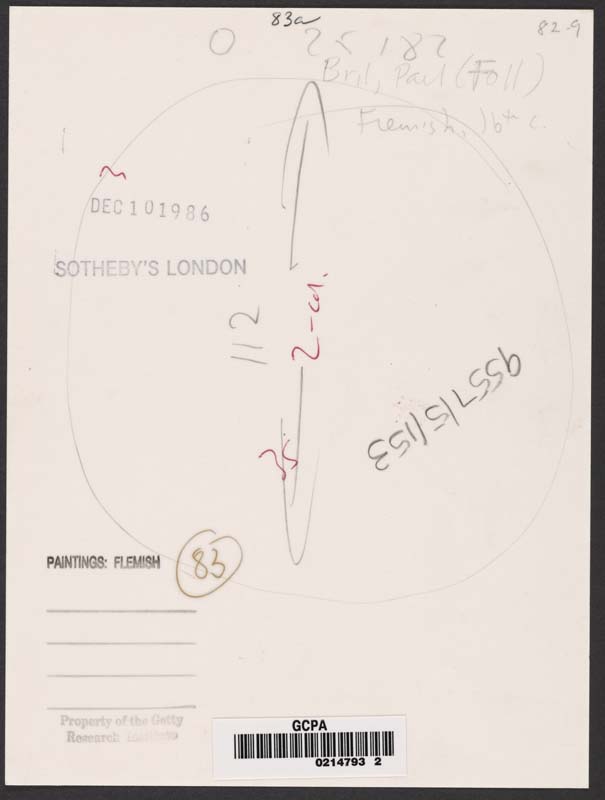 83a
82-9
O 25 182
Bril, Paul (Foll)
Flemish, 16th c.
DEC 10 1986
SOTHEBY'S LONDON
112
2-col.
9557/5/153
35
PAINTINGS: FLEMISH
83
Property of the Getty
Research Institute
GCPA
0214793 2